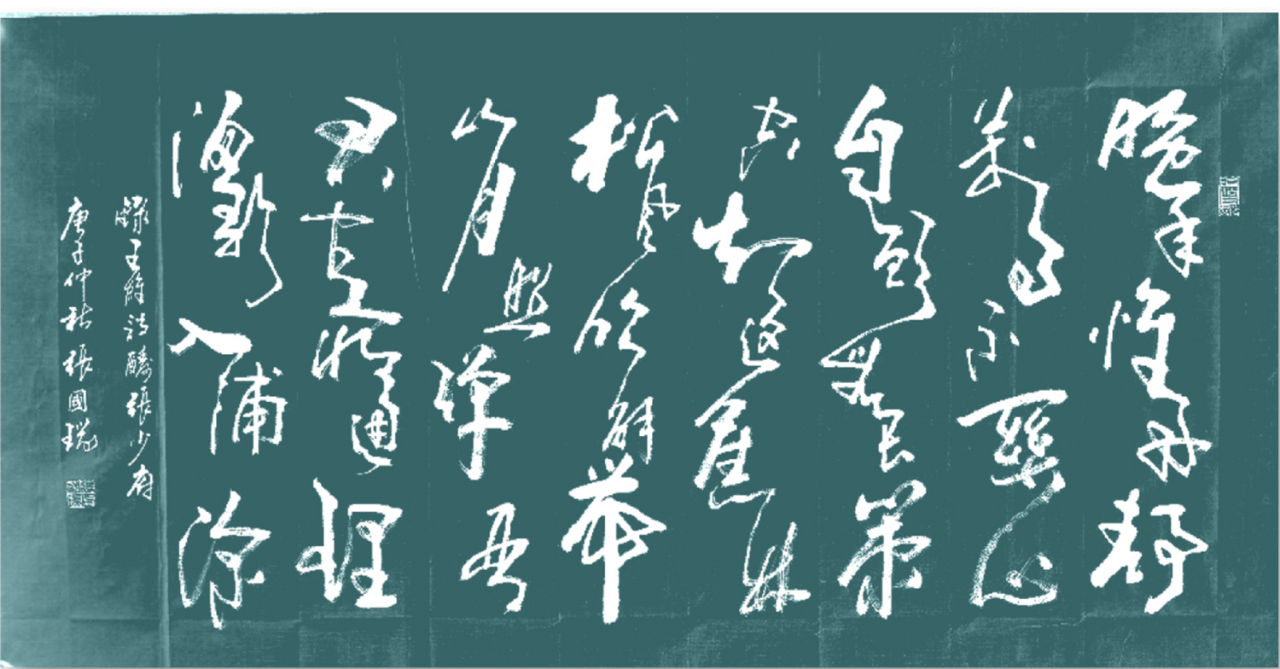 晚年惟好靜
萬事不關心
自顧無長策
空知返舊林
松風吹解帶
山月照彈琴
君問窮通理
漁歌入浦深
錄王維詩醻張少府
庚子仲秋張國